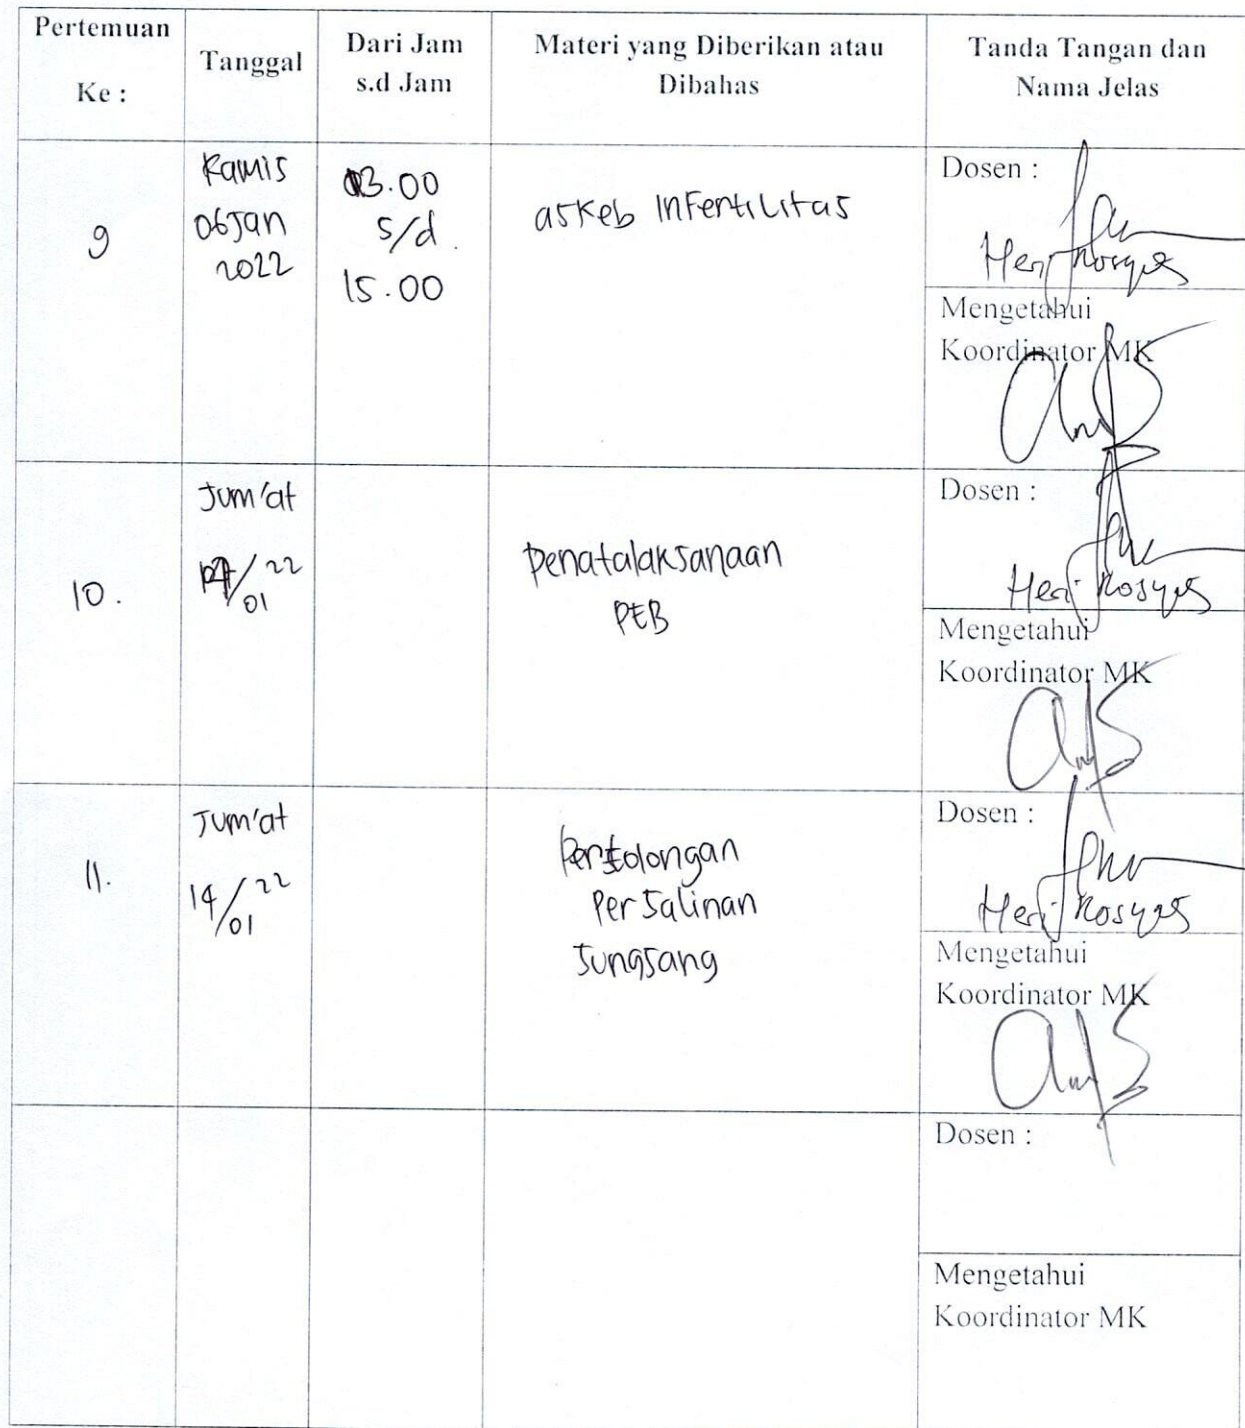 Pertemuan
Ke :
Tanggal
Dari Jam
s.d Jam
Materi yang Diberikan atau
Dibahas
Tanda Tangan dan
Nama Jelas
9
Kamis
06 Jan
2022
13.00
s/d.
15.00
askeb infertilitas
Dosen :
Heri Rosyati
Mengetahui
Koordinator MK
10.
Jum'at
/22
01
penatalaksanaan
PEB
Dosen :
Heri Rosyati
Mengetahui
Koordinator MK
11.
Jum'at
14/22
01
Pertolongan
Persalinan
Sungsang
Dosen :
Heri Rosyati
Mengetahui
Koordinator MK
Dosen :
Mengetahui
Koordinator MK